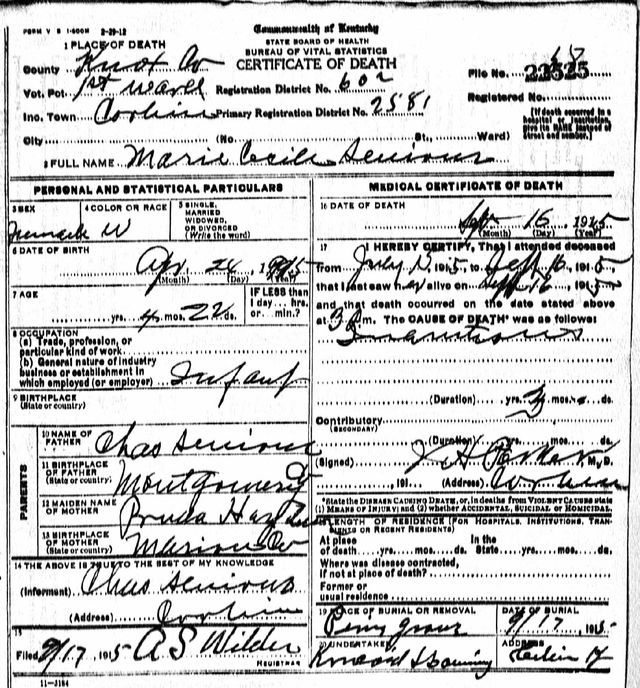 FORM V S 1-500M 2-29-12
Commonwealth of Kentucky
STATE BOARD OF HEALTH
BUREAU OF VITAL STATISTICS
CERTIFICATE OF DEATH
1 PLACE OF DEATH
County Knox Co
Vot. Pct. 1st Ward Registration District No. 602
Inc. Town Corbin Primary Registration District No. 2581
City (No. St., Ward)
File No. 22525
Registered No.
[If death occurred in a hospital or institution, give its NAME instead of street and number.]
2 FULL NAME Marie Cecile
PERSONAL AND STATISTICAL PARTICULARS
3 SEX
4 COLOR OR RACE W
5 SINGLE, MARRIED WIDOWED, OR DIVORCED (Write the word)
6 DATE OF BIRTH
Apr 24
(Month) (Day) (Year)
7 AGE
yrs. 4 mos. 22 ds.
IF LESS than 1 day... hrs. or min.?
8 OCCUPATION
(a) Trade, profession, or particular kind of work
(b) General nature of industry business or establishment in which employed (or employer) Infant
9 BIRTHPLACE
(State or country)
PARENTS
10 NAME OF FATHER Chas
11 BIRTHPLACE OF FATHER
(State or country) Montgomery
12 MAIDEN NAME OF MOTHER
13 BIRTHPLACE OF MOTHER
(State or country) Marion Co
14 THE ABOVE IS TRUE TO THE BEST OF MY KNOWLEDGE
(Informant) Chas
(Address) Corbin
15
Filed 9/17, 1915 A S Wilder
REGISTRAR
11-3184
MEDICAL CERTIFICATE OF DEATH
16 DATE OF DEATH
Sept 16, 1915
(Month) (Day) (Year)
17 I HEREBY CERTIFY, That I attended deceased
from July, 1915, to Sept 16, 1915
that I last saw her alive on Sept 16, 1915
and that death occurred on the date stated above
at 3 m. The CAUSE OF DEATH* was as follows:
(Duration) yrs. mos. ds.
Contributory
(SECONDARY)
(Duration) yrs. mos. ds.
(Signed) M. D.
, 191 (Address) Corbin
*State the DISEASE CAUSING DEATH, or, in deaths from VIOLENT CAUSES state (1) MEANS OF INJURY; and (2) whether ACCIDENTAL, SUICIDAL or HOMICIDAL.
LENGTH OF RESIDENCE (FOR HOSPITALS, INSTITUTIONS, TRANSIENTS OR RECENT RESIDENTS)
At place of death yrs. mos. ds. In the State yrs. mos. ds.
Where was disease contracted, if not at place of death?
Former or usual residence
19 PLACE OF BURIAL OR REMOVAL
DATE OF BURIAL
9/17, 1915
20 UNDERTAKER
ADDRESS